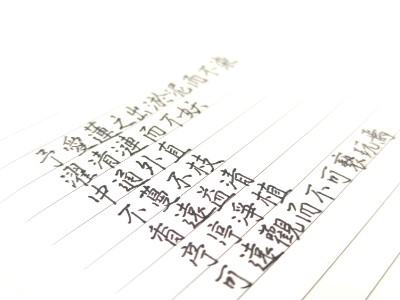 予愛蓮之出淤泥而不染
濯清漣而不妖
中通外直
不蔓不枝
香遠益清
亭亭淨植
可遠觀而不可褻玩焉